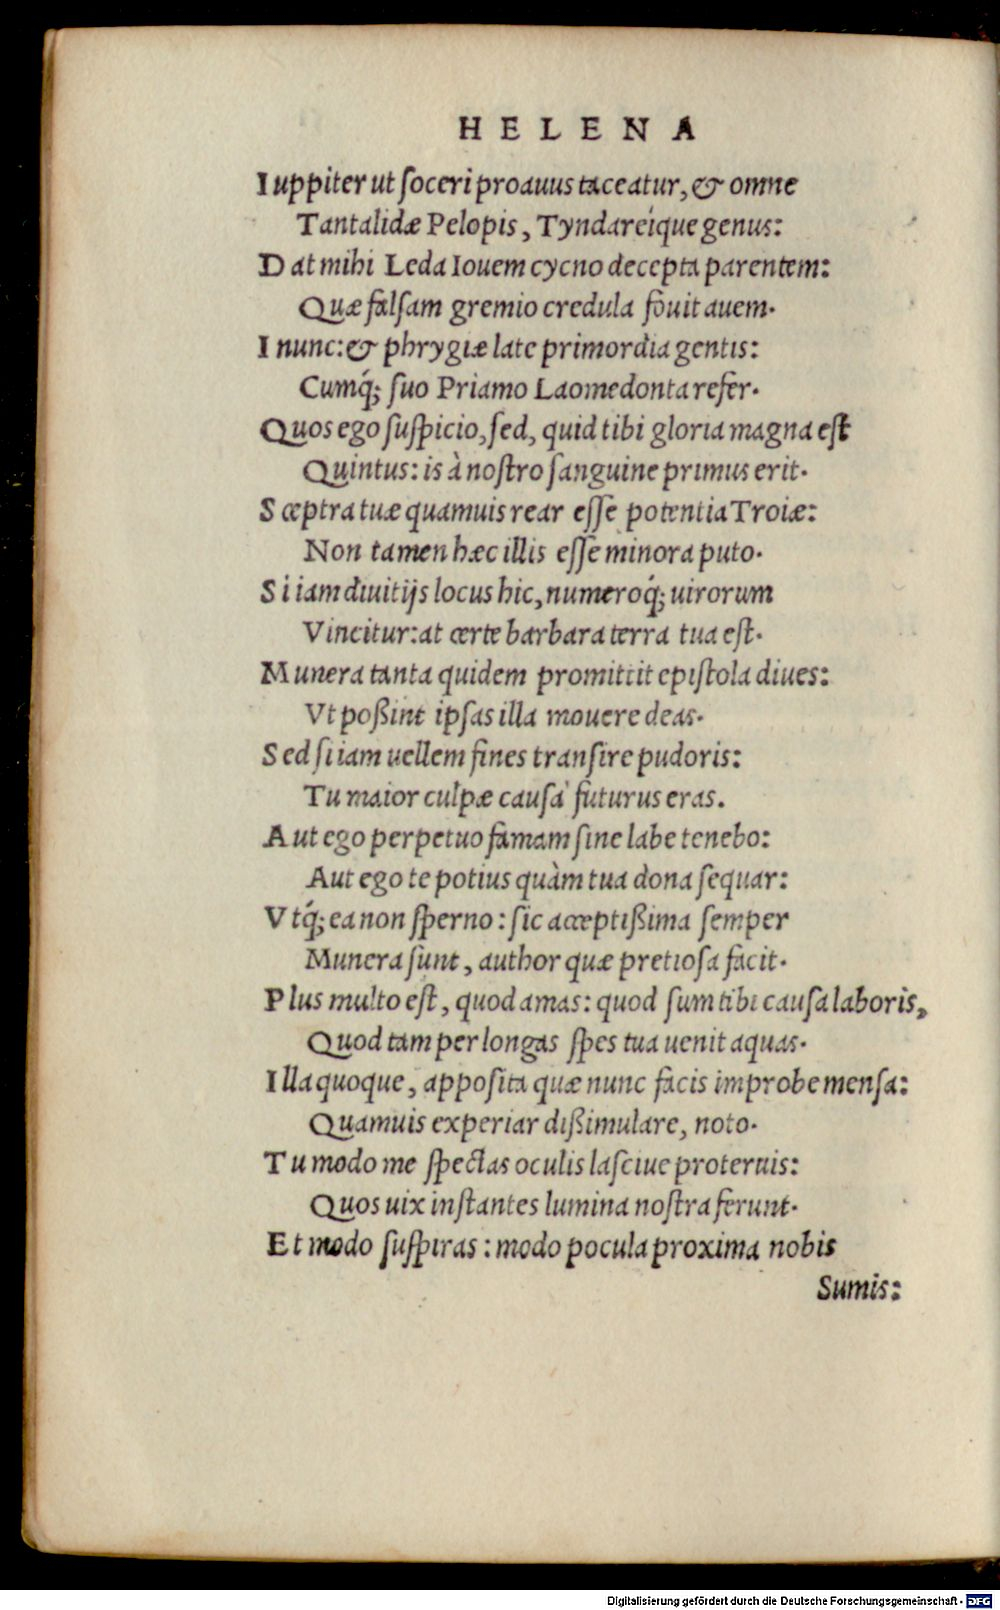 HELENA
Iuppiter ut ſoceri proauus taceatur, & omne
Tantalidæ Pelopis, Tyndareíque genus:
Dat mihi Leda Iouem cycno decepta parentem:
Quæ falſam gremio credula fouit auem.
I nunc: & phrygiæ late primordia gentis:
Cumq́; ſuo Priamo Laomedonta refer.
Quos ego ſuſpicio, ſed, quid tibi gloria magna eſt
Quintus: is à noſtro ſanguine primus erit.
Sceptra tuæ quamuis rear eſſe potentia Troiæ:
Non tamen hæc illis eſſe minora puto.
Si iam diuitijs locus hic, numeroq́; uirorum
Vincitur: at certe barbara terra tua eſt.
Munera tanta quidem promittit epiſtola diues:
Vt poßint ipſas illa mouere deas.
Sed ſi iam uellem fines tranſire pudoris:
Tu maior culpæ cauſa futurus eras.
Aut ego perpetuo famam ſine labe tenebo:
Aut ego te potius quàm tua dona ſequar:
Vtq́; ea non ſperno: ſic acceptißima ſemper
Munera ſunt, author quæ pretioſa facit.
Plus multo eſt, quod amas: quod ſum tibi cauſa laboris,
Quod tam per longas ſpes tua uenit aquas.
Illa quoque, appoſita quæ nunc facis improbe menſa:
Quamuis experiar dißimulare, noto.
Tu modo me ſpectas oculis laſciue proteruis:
Quos uix inſtantes lumina noſtra ferunt.
Et modo ſuſpiras: modo pocula proxima nobis
Sumis:
Digitalisierung gefördert durch die Deutsche Forschungsgemeinschaft - DFG